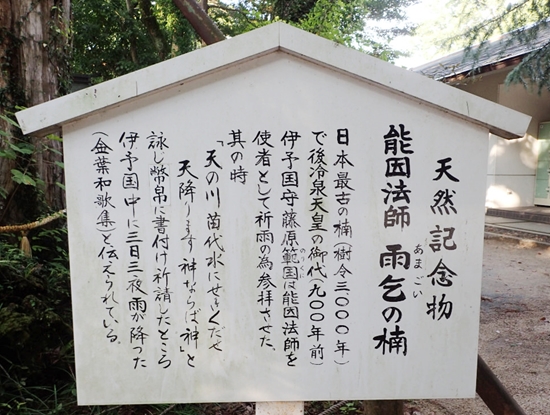 天然記念物
能因法師 雨乞の楠
あまごい
日本最古の楠(樹令三〇〇〇年)
で後冷泉天皇の御代(九〇〇年前)
伊予国守藤原範国は能因法師を
のりくに
使者として祈雨の為参拝させた。
其の時
「天の川 苗代水にせきくだせ
天降ります 神ならば神」と
詠じ幣帛に書付け祈請したところ
伊予国中に三日三夜雨が降った
(金葉和歌集)と伝えられている。